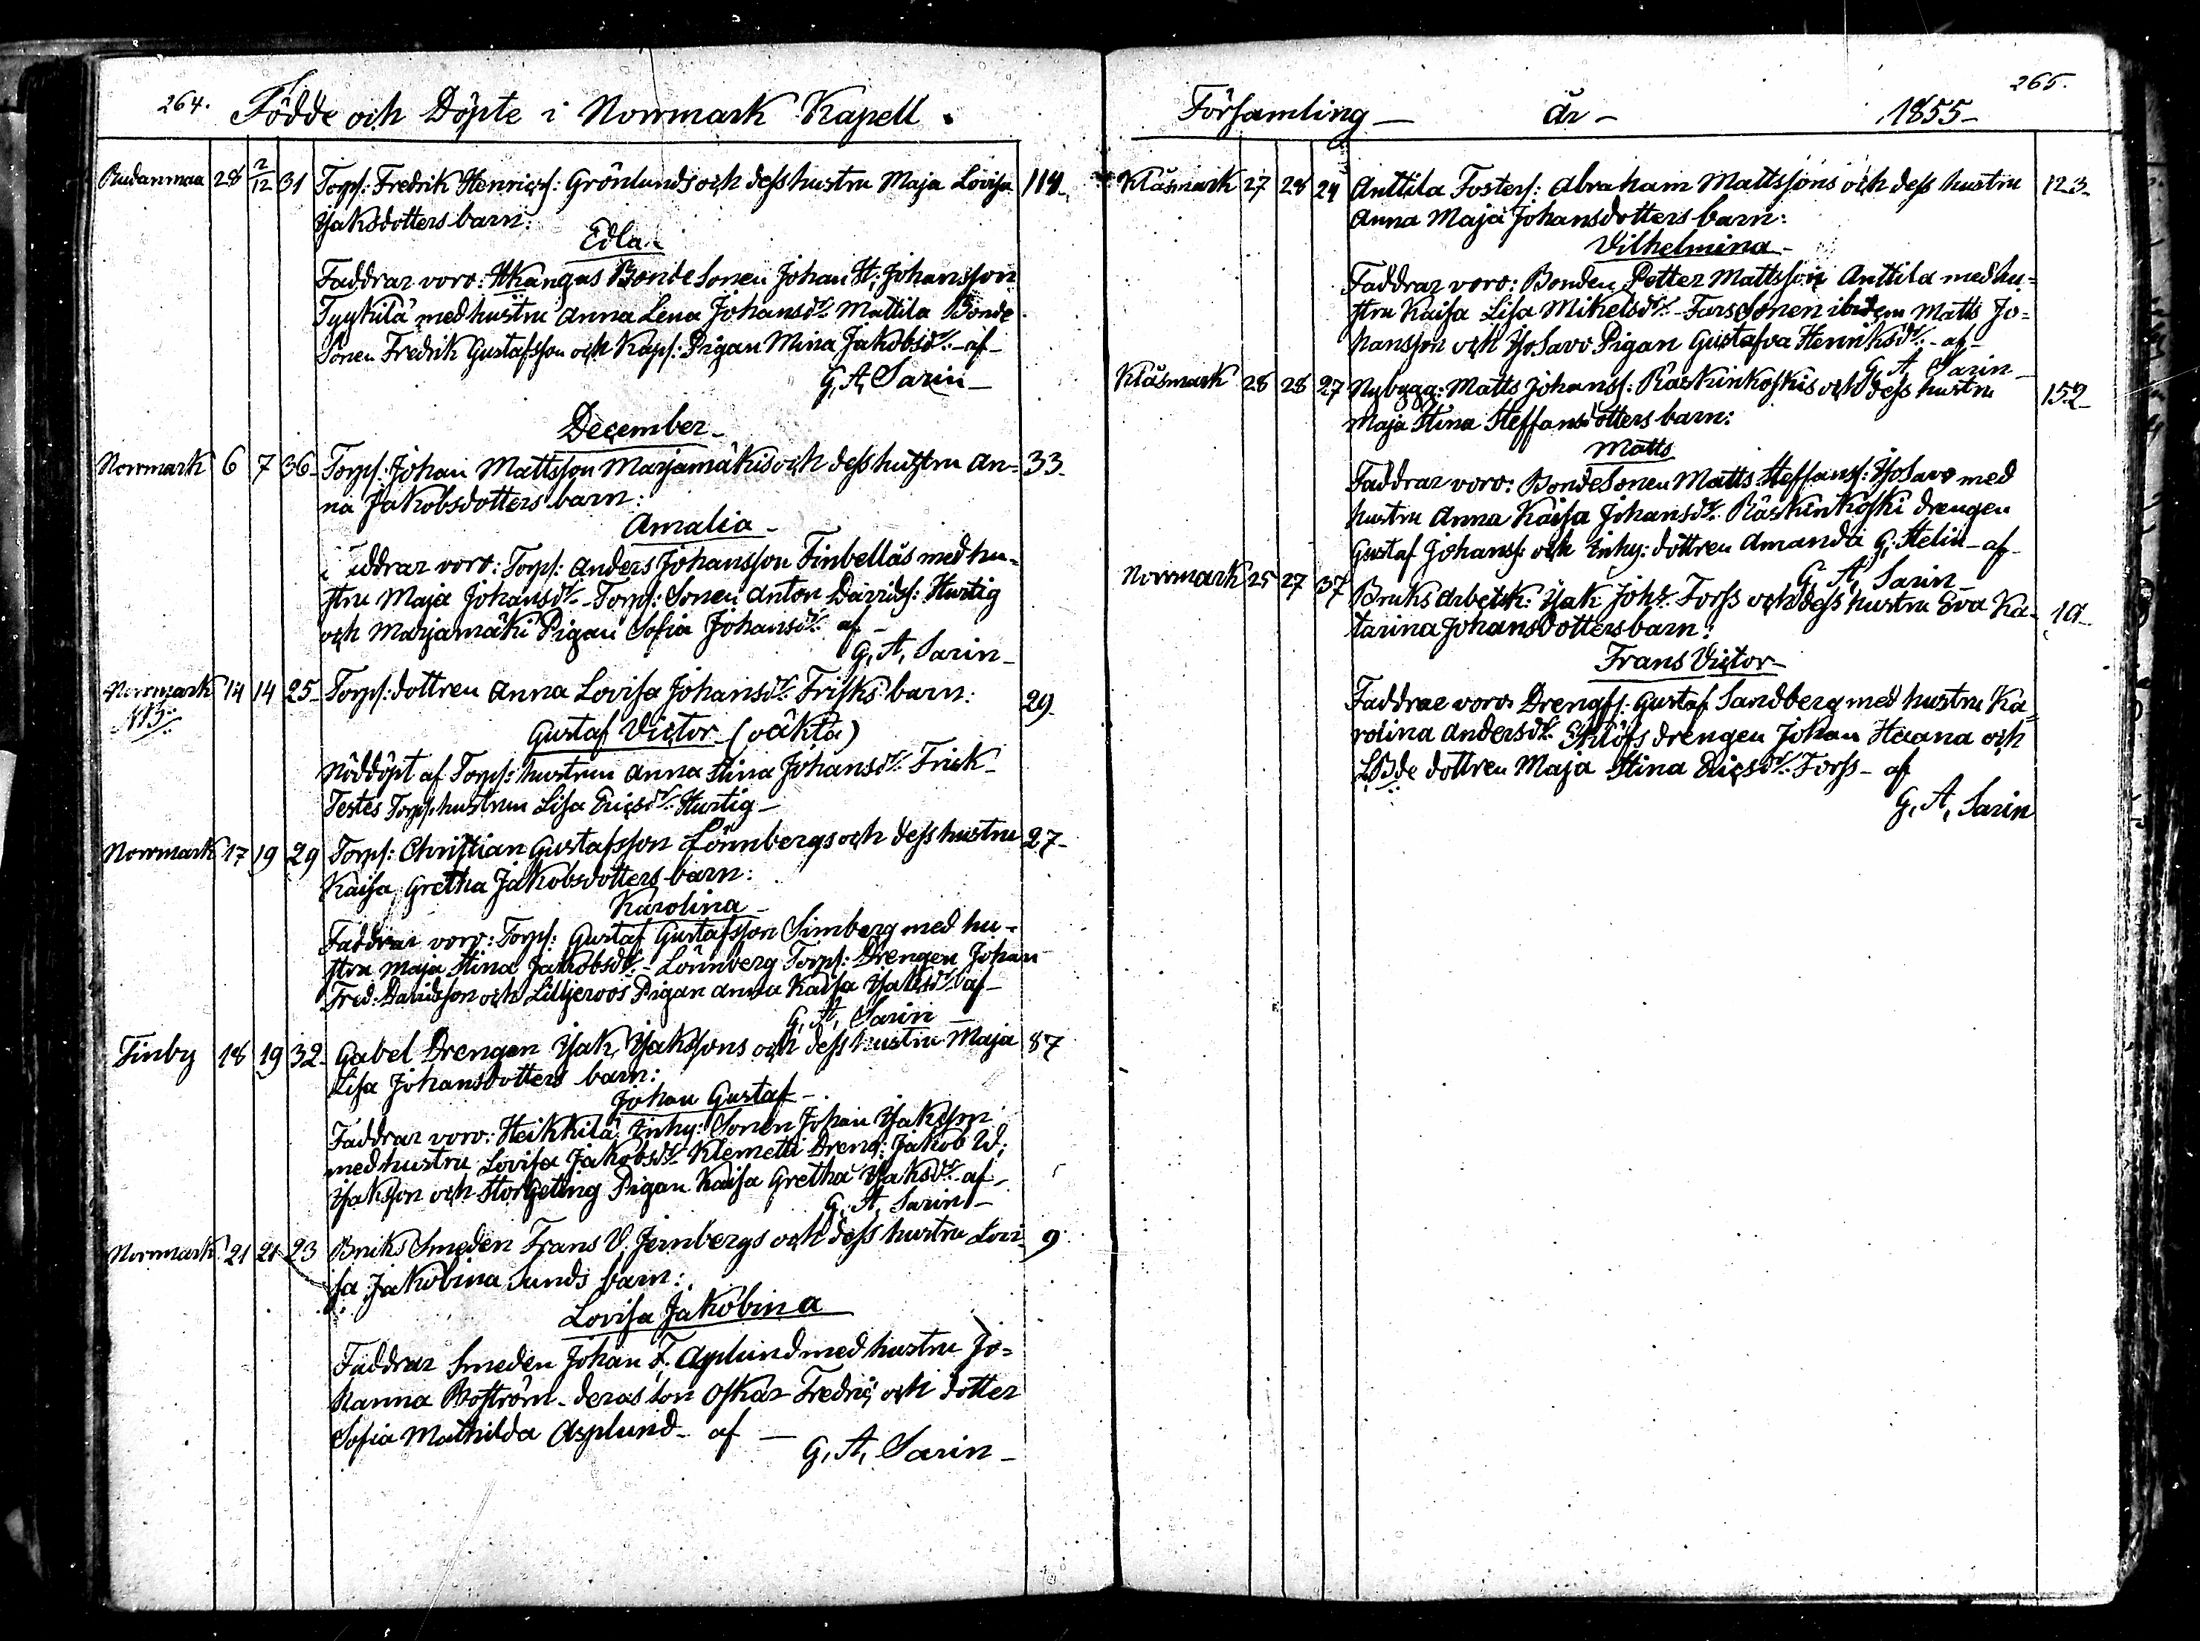 264. Födde och Döpte i Norrmark Kapell.
Rudanmaa 28 2/12 31 Torps: Fredrik Henrics: Grönlunds och dess hustru Maja Lovisa 114.
Isaksdotters barn:
Edla
Faddrar voro: Kangas Bonde Sonen Johan H: Johansson
Tyykilä med hustru Anna Lena Johansdr Mattila Bonde
Sonen Fredrik Gustafsson och Kaps: Pigan Mina Jakobsdr af
G. A. Sarin
December
Norrmark 6 7 36 Torps: Johan Mattsson Marjamäkis och dess hustru An= 33
na Jakobsdotters barn:
Amalia
Faddrar voro: Torps: Anders Johansson Finbelläs med hu=
stru Maja Johansdr Torps: Sonen Anton Davids: Hurtig
och Marjamäki Pigan Sofia Johansdr af
G. A. Sarin
Norrmark 14 14 25 Torps: dottren Anna Lovisa Johansdr Frisks barn: 29
NB:
Gustaf Victor (oäkta)
Nöddöpt af Torps: hustrun Anna Stina Johansdr Frisk
Testes Torps. hustrun Lisa Ericsdr Hurtig
Norrmark 17 19 29 Torps: Christian Gustafsson Lönnbergs och dess hustru 27
Kaisa Gretha Jakobsdotters barn:
Karolina
Faddrar voro: Torps: Gustaf Gustafsson Simberg med hu=
stru Maja Stina Jakobsdr Lönnberg Torps: Drengen Johan
Fred: Davidsson och Liljeroos Pigan Anna Kaisa Isaksdr af
G. A. Sarin
Finby 18 19 32 Gabel Drengen Isak Isakssons och dess hustru Maja 87
Lisa Johansdotters barn:
Johan Gustaf
Faddrar voro: Heikkilä Inhy: Sonen Johan Isaksson
med hustru Lovisa Jakobsdr Klemetti Dreng: Jakob W:
Isaksson och Storgeting Pigan Kaisa Gretha Isaksdr af
G. A. Sarin
Norrmark 21 21 23 Bruks Smeden Frans V. Jernbergs och dess hustru Lovi= 9
sa Jakobina Sunds barn:
Lovisa Jakobina
Faddrar Smeden Johan F. Asplund med hustru Jo=
hanna Boström deras son Oskar Fredric och dotter
Sofia Mathilda Asplund af
G. A. Sarin
Församling år 1855 265.
Klåsmark 27 28 24 Anttila Fosters: Abraham Mattssons och dess hustru 123
Anna Maja Johansdotters barn:
Vilhelmina
Faddrar voro: Bonden Petter Mattsson Anttila med hu=
stru Kaisa Lisa Mikelsdr Fars Sonen ibidem Matts Jo=
hansson och Isosavo Pigan Gustafva Henriksdr af
G. A. Sarin
Klåsmark 28 28 27 Nybygg: Matts Johanss: Räskinkoskis och dess hustru 152
Maja Stina Steffansdotters barn:
Matts
Faddrar voro: Bonde Sonen Matts Steffans: Isosavo med
hustru Anna Kaisa Johansdr Räskinkoski drengen
Gustaf Johanss: och Inhy: dottren Amanda G. Helin af
G. A. Sarin
Norrmark 25 27 37 Bruks Arbetsk: Isak Johs: Forss och dess hustru Eva Ka=
tarina Johansdotters barn:
Frans Victor
Faddrar voro Drengs: Gustaf Sandberg med hustru Ka=
rolina Andersdr drengen Johan Haana och
dottren Maja Stina Ericsdr Forss af
G. A. Sarin